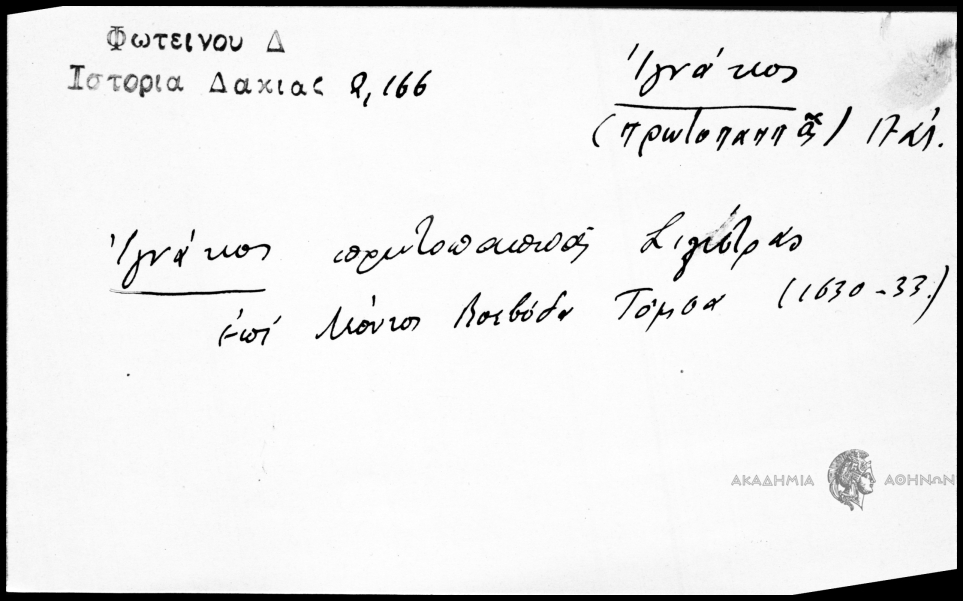 Φωτεινου Δ
Ιστορια Δακιας 2, 166
Ἰγνάτιος
(πρωτοπαππᾶς) 17 αἰ.
Ἰγνάτιος πρωτοπαππᾶς Σιλίστρας
ἐπί Λέοντος Βοεβόδα Τόμσα (1630-33.)
ΑΚΑΔΗΜΙΑ ΑΘΗΝΩΝ